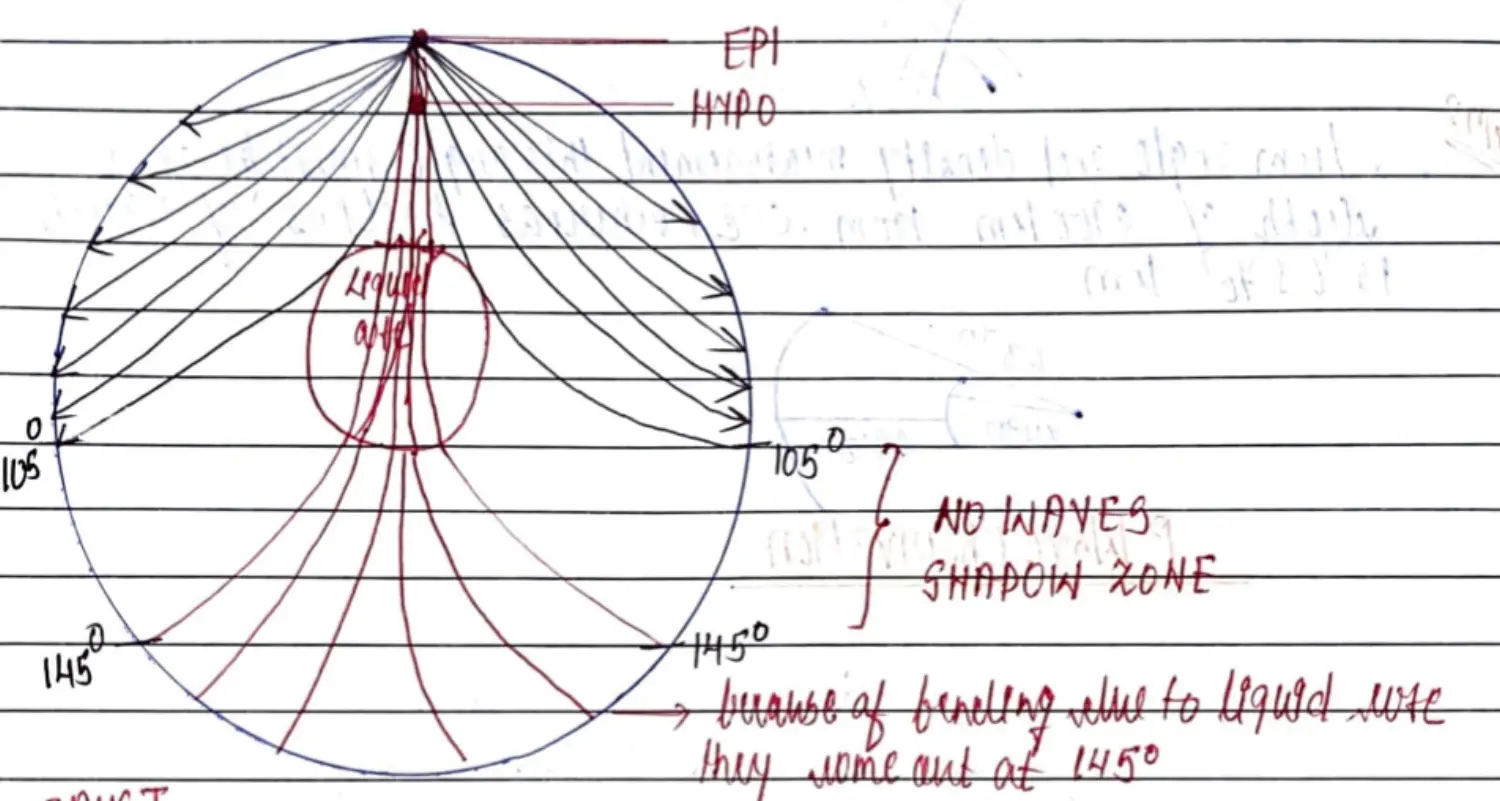 EPI
HYPO
Liquid
core
105°
105°
NO WAVES
SHADOW ZONE
145°
145°
→ because of bending due to liquid core
they come out at 145°